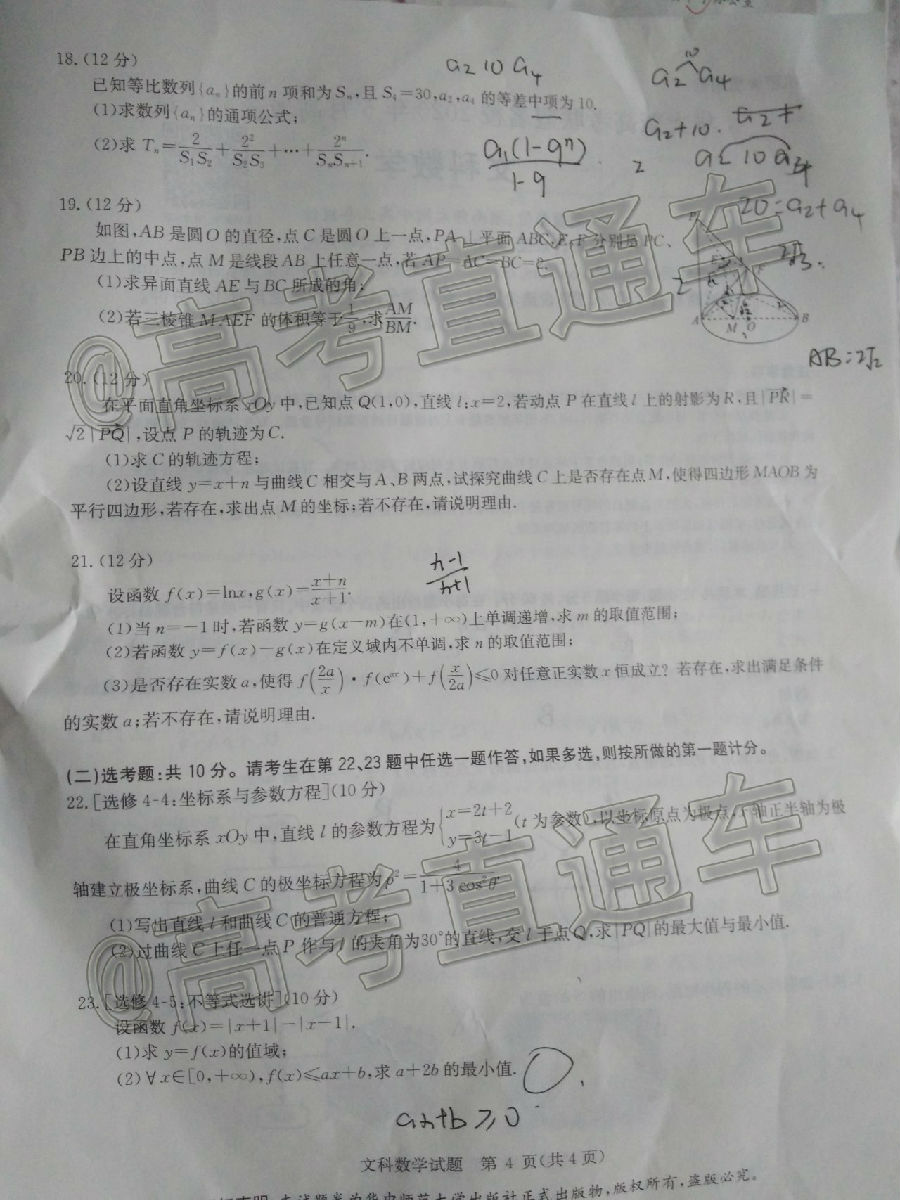 18.(12分)
已知等比数列{aₙ}的前n项和为Sₙ,且S₄=30,a₂,a₄的等差中项为10.
(1)求数列{aₙ}的通项公式;
(2)求 Tₙ=2/S₁S₂+2²/S₂S₃+…+2ⁿ/SₙSₙ₊₁.
a₂ 10 a₄
a₂ 10 a₄
a₂+10.
a₁(1-qⁿ)/1-q
20=a₂+a₄
19.(12分)
如图,AB是圆O的直径,点C是圆O上一点,PA⊥平面ABC,E、F分别是PC、
PB边上的中点,点M是线段AB上任意一点,若AP=AC=BC=2.
(1)求异面直线AE与BC所成的角;
(2)若三棱锥M-AEF的体积等于1/9,求AM/BM.
A M O B
2√3.
AB=2√2
20.(12分)
在平面直角坐标系xOy中,已知点Q(1,0),直线l:x=2,若动点P在直线l上的射影为R,且|PR|=
√2|PQ|,设点P的轨迹为C.
(1)求C的轨迹方程;
(2)设直线y=x+n与曲线C相交与A、B两点,试探究曲线C上是否存在点M,使得四边形MAOB为
平行四边形,若存在,求出点M的坐标;若不存在,请说明理由.
21.(12分)
n-1/n+1
设函数f(x)=lnx,g(x)=x+n/x+1.
(1)当n=-1时,若函数y=g(x-m)在(1,+∞)上单调递增,求m的取值范围;
(2)若函数y=f(x)-g(x)在定义域内不单调,求n的取值范围;
(3)是否存在实数a,使得f(2a/x)·f(eᵃˣ)+f(x/2a)≤0对任意正实数x恒成立?若存在,求出满足条件
的实数a;若不存在,请说明理由.
(二)选考题:共10分。请考生在第22、23题中任选一题作答,如果多选,则按所做的第一题计分。
22.[选修4-4:坐标系与参数方程](10分)
在直角坐标系xOy中,直线l的参数方程为{x=2t+2 y=3t-1(t为参数),以坐标原点为极点,x轴正半轴为极
轴建立极坐标系,曲线C的极坐标方程为ρ²=4/1+3cos²θ.
(1)写出直线l和曲线C的普通方程;
(2)过曲线C上任一点P作与l的夹角为30°的直线,交l于点Q,求|PQ|的最大值与最小值.
23.[选修4-5:不等式选讲](10分)
设函数f(x)=|x+1|-|x-1|.
(1)求y=f(x)的值域;
(2)∀x∈[0,+∞),f(x)≤ax+b,求a+2b的最小值.
ax+b≥0
文科数学试题 第4页(共4页)
@高考直通车
@高考直通车